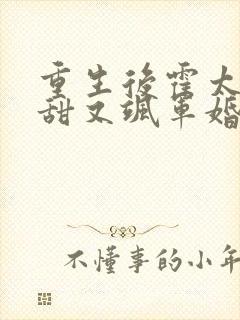 重生後霍太
甜又颯軍婚
不懂事的小年